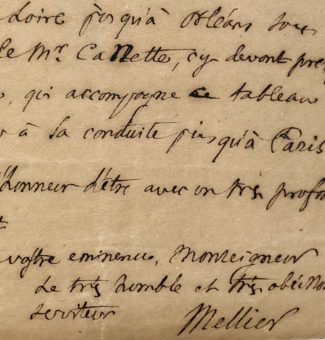 Loire jusqu'à Orléans sous
le Mr. Callette, cy devont pre
qui accompagne ce tableau
à sa conduite jusqu'à Paris
l'honneur d'être avec un tres profon
votre eminence, Monseigneur
Le tres humble et tres obéissan
serviteur
Mellier